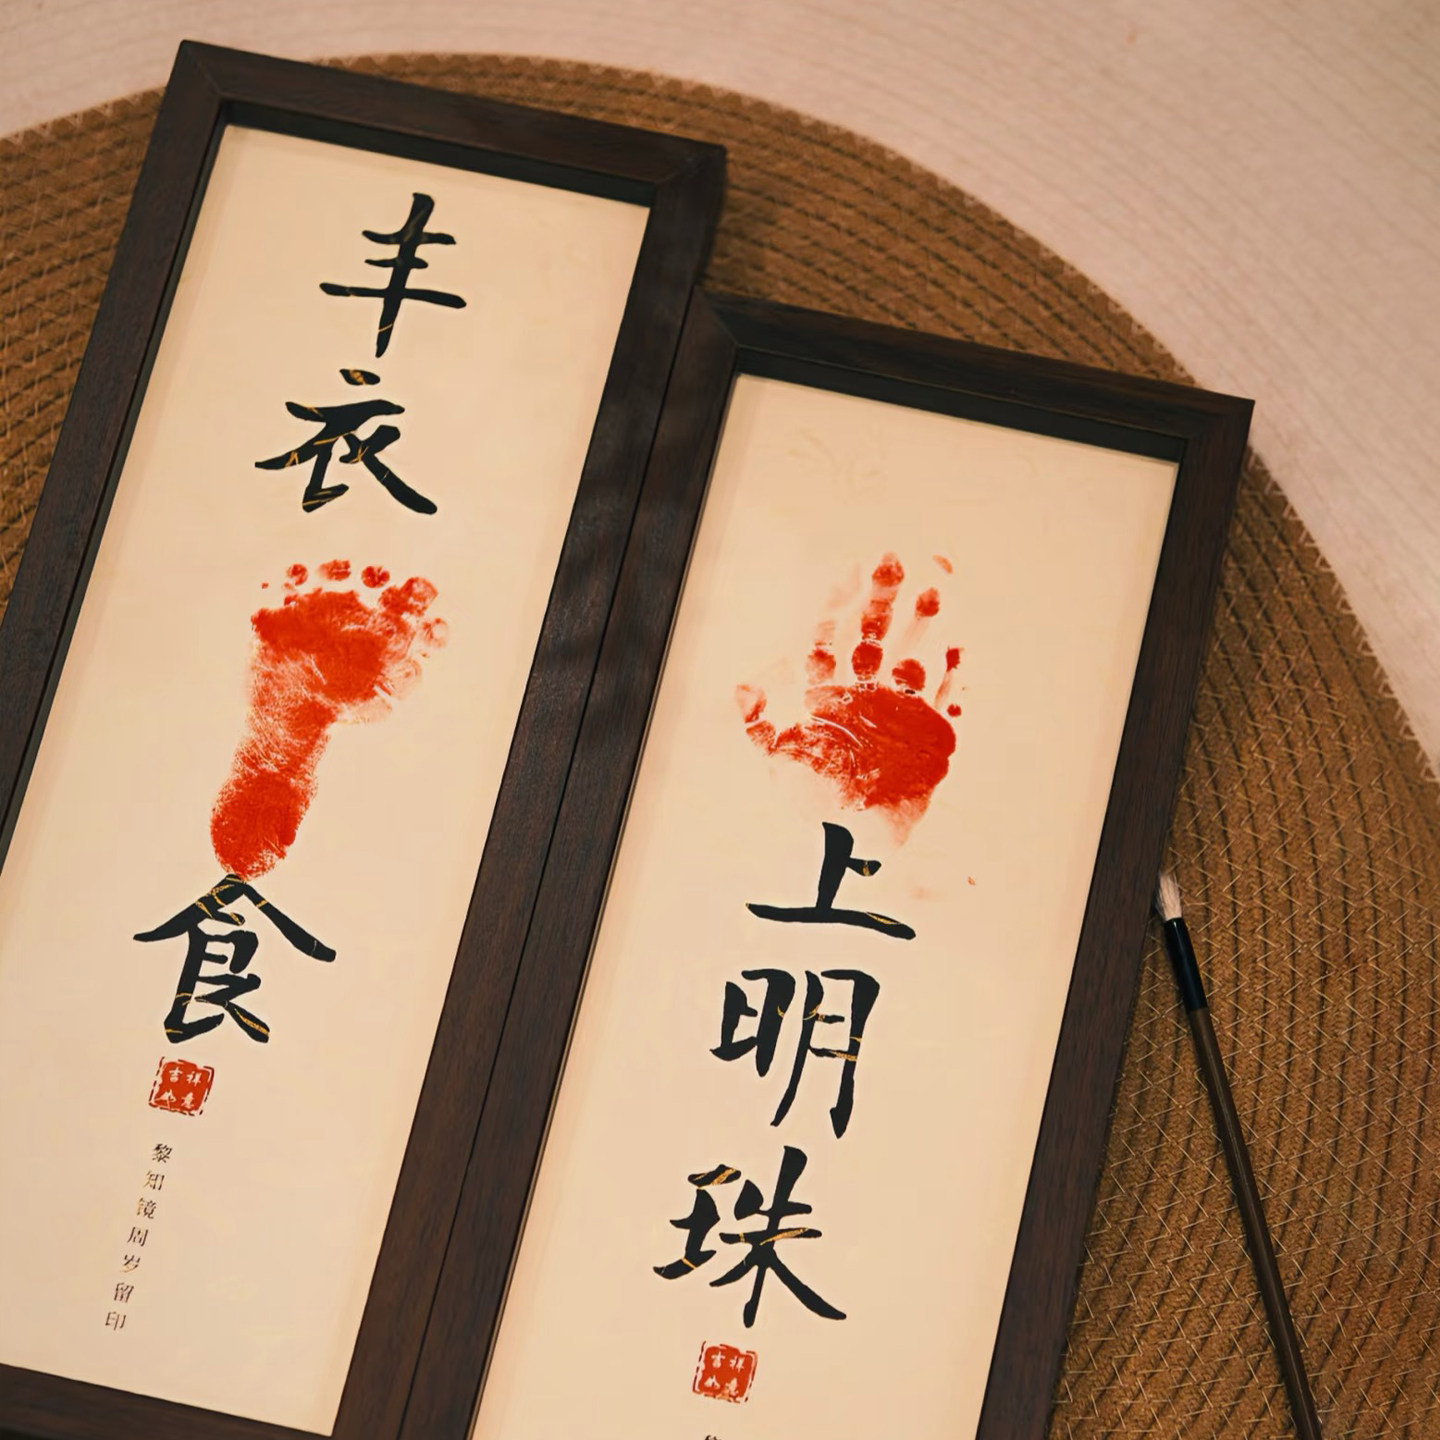 丰衣食
吉祥如意
黎知镜周岁留印
上明珠
吉祥如意